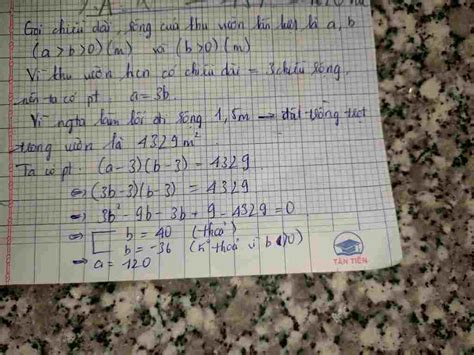 Gọi chiều dài, rộng của thu vườn lần lượt là a, b
(a > b > 0) (m) và (b > 0) (m)
Vì thu vườn hcn có chiều dài = 3 chiều rộng
nên ta có pt a = 3b.
Vì ngta làm lối đi rộng 1,5m → đất trồng trọt
trong vườn là 4329 m²
Ta có pt: (a-3)(b-3) = 4329
⇔ (3b-3)(b-3) = 4329
⇔ 3b² - 9b - 3b + 9 - 4329 = 0
⇔ b = 40 (thoả)
b = -36 (k° thoả vì b > 0)
⇒ a = 120
TÂN TIẾN